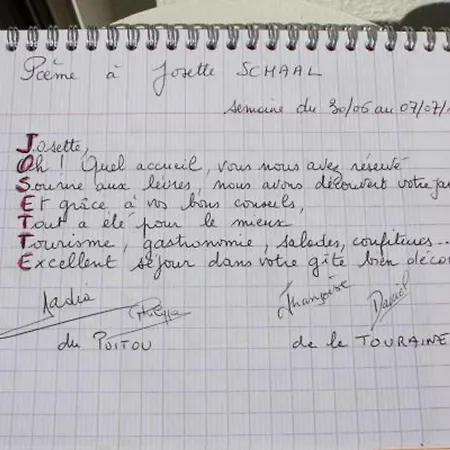 Poème à Josette SCHAAL
semaine du 30/06 au 07/07/
Josette,
Oh ! Quel accueil, vous nous avez réservé
Sourire aux lèvres, nous avons découvert votre
Et grâce à vos bons conseils,
Tout a été pour le mieux
Tourisme, gastronomie, salades, confitures...
Excellent séjour dans votre gîte bien
Nadia Françoise Daniel
du POITOU de la TOURAINE